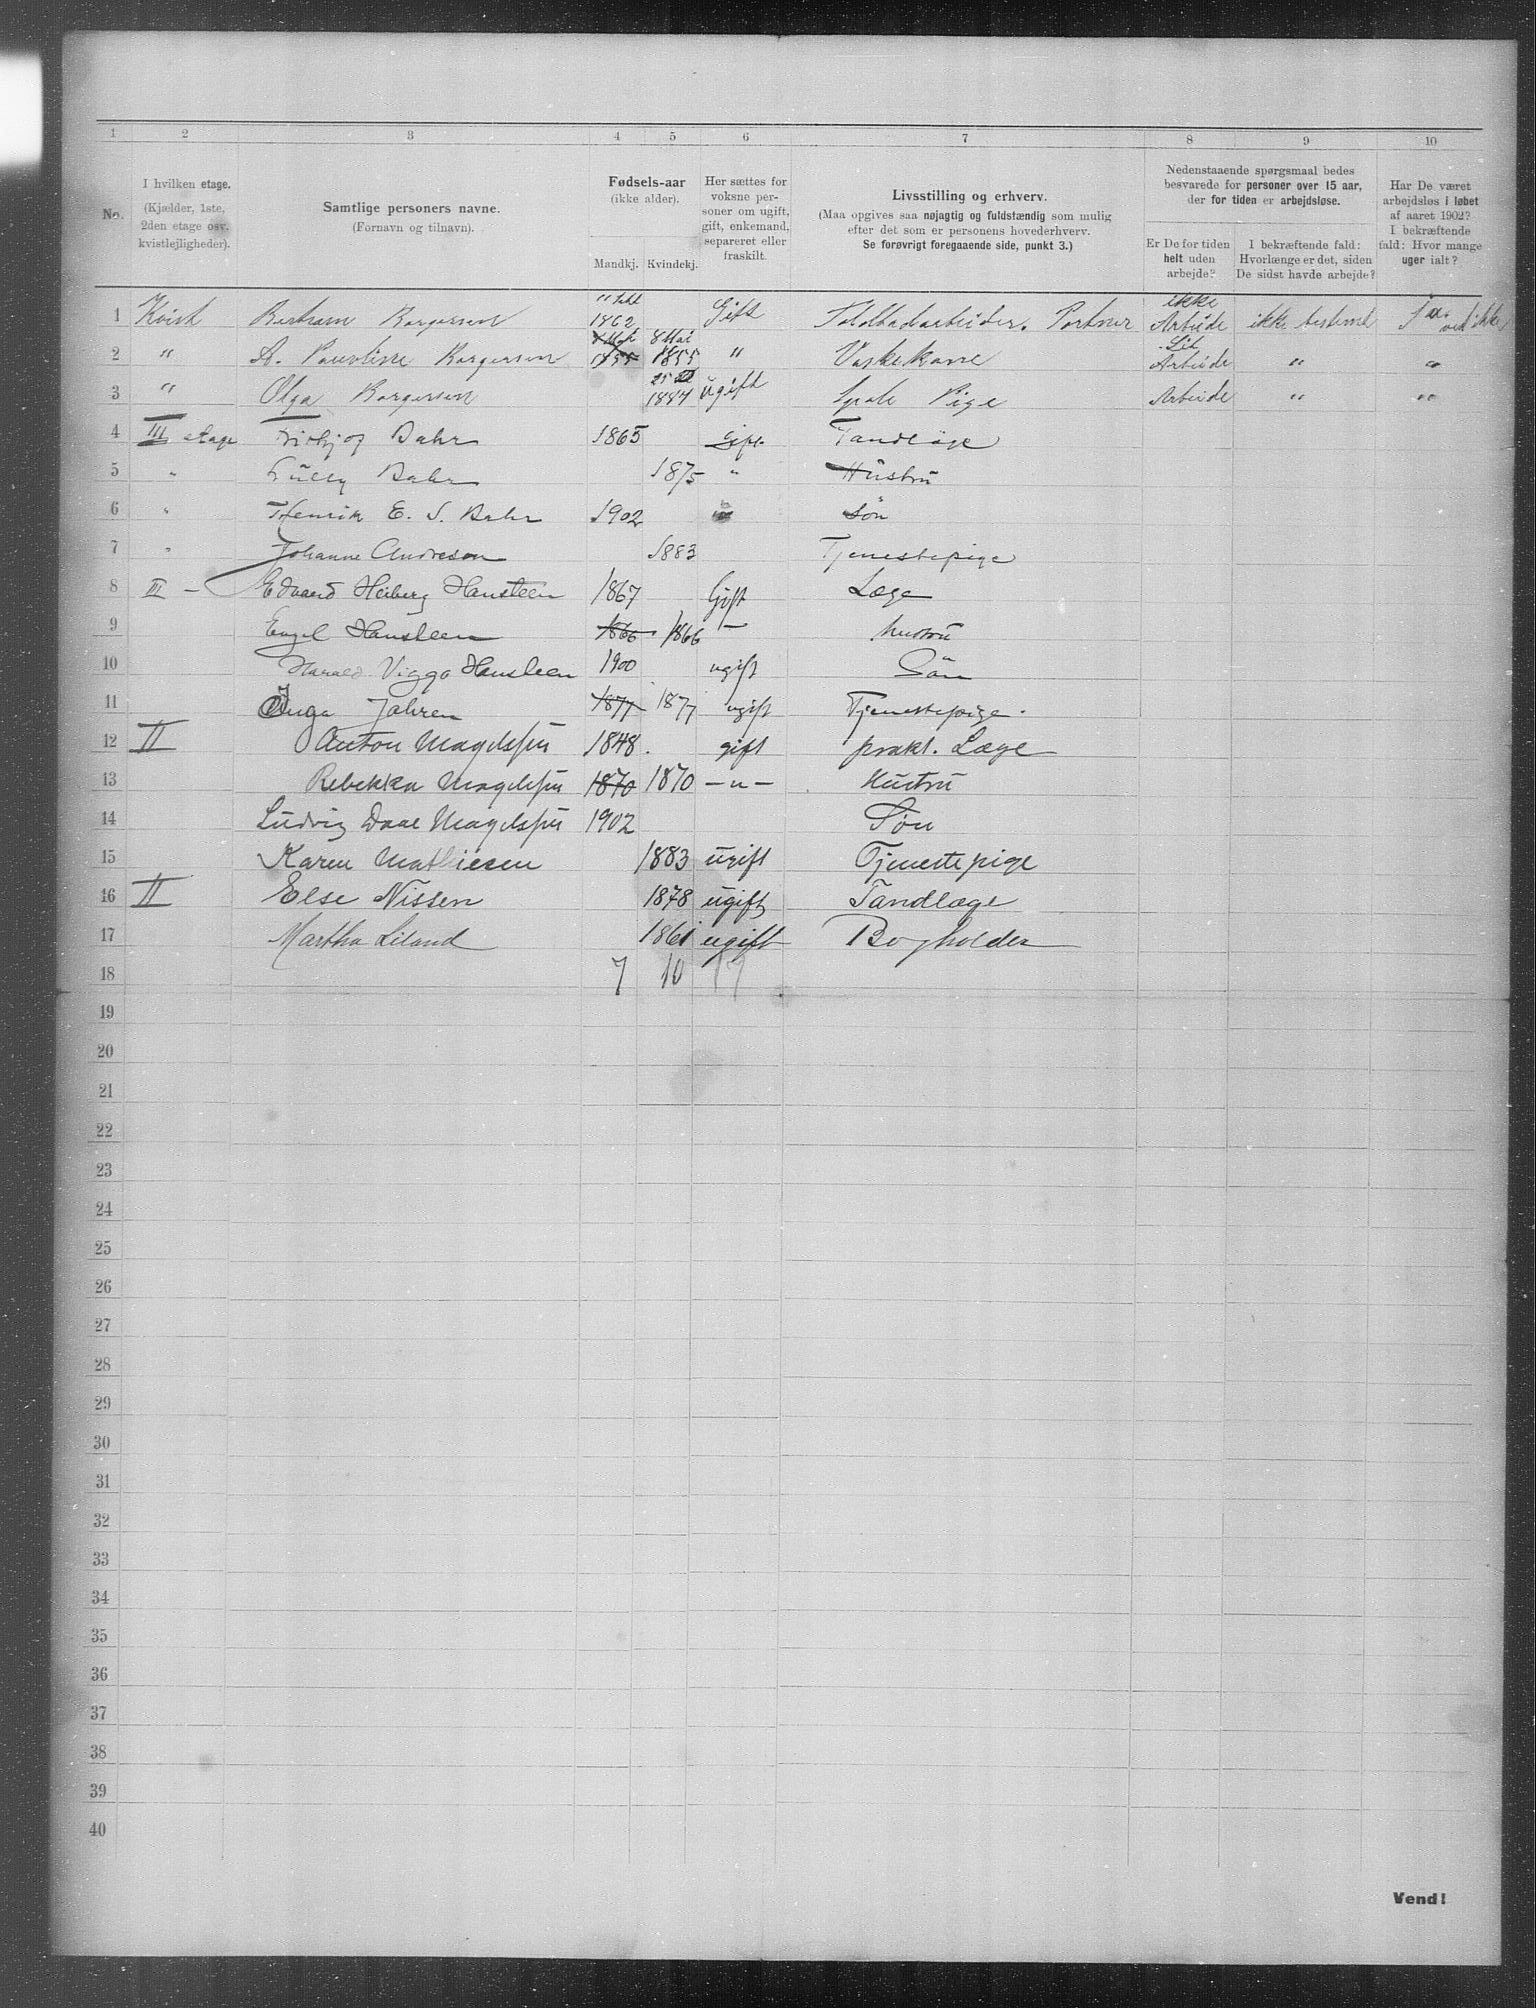 1 2 3 4 5 6 7 8 9 10
No.
I hvilken etage.
(Kjælder, 1ste,
2den etage osv.
kvistlejligheder).
Samtlige personers navne.
(Fornavn og tilnavn).
Fødsels-aar
(ikke alder).
Mandkj. Kvindekj.
Her sættes for
voksne per-
soner om ugift,
gift, enkemand,
separeret eller
fraskilt.
Livsstilling og erhverv.
(Maa opgives saa nøjagtig og fuldstændig som mulig
efter det som er personens hovederhverv.
Se forøvrigt foregaaende side, punkt 3.)
Nedenstaaende spørgsmaal bedes
besvarede for personer over 15 aar,
der for tiden er arbejdsløse.
Er De for tiden
helt uden
arbejde?
I bekræftende fald:
Hvorlænge er det, siden
De sidst havde arbejde?
Har De været
arbejdsløs i løbet
af aaret 1902?
I bekræftende
fald: Hvor mange
uger ialt?
1 Kvist Bertram Borgersen 1862 Gift Portner ikke Arbeide ikke bestemt
2 " Pauoline Borgersen 8 Mai 1855 " Vaskekone Lit Arbeide " "
3 " Olga Borgersen 1884 ugift Pige Arbeide " "
4 III etage Fritjof Bahr 1865 Gift Tandlæge
5 " Bahr 1875 " Hustru
6 " Henrik E. S. Bahr 1902 Søn
7 " Johanne Andresen 1883 Tjenestepige
8 III – Edvard Heiberg Hansteen 1867 Gift Læge
9 Engel Hansteen 1866 1866 – hustru
10 Harald Viggo Hansteen 1900 ugift Sön
11 Inga Johren 1877 1877 ugift Tjenestepige.
12 II Anton Magelssen 1848. gift prakt. Læge
13 Rebekka Magelssen 1870 1870 – " – Hustru
14 Ludvig Daae Magelssen 1902 Søn
15 Karen Mathiesen 1883 ugift Tjenestepige
16 II Else Nissen 1878 ugift Tandlæge
17 Martha Liland 1861 ugift Bogholder
18 7 10 17
19
20
21
22
23
24
25
26
27
28
29
30
31
32
33
34
35
36
37
38
39
40
Vend!